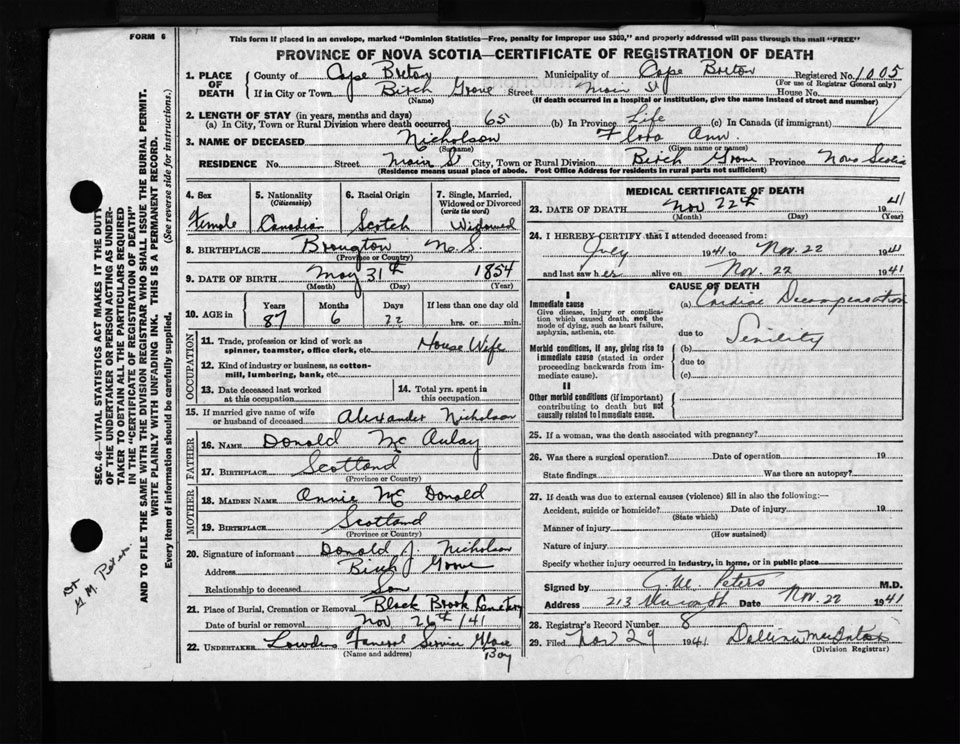 FORM 6
This form if placed in an envelope, marked "Dominion Statistics—Free, penalty for improper use $300," and properly addressed will pass through the mail "FREE"
PROVINCE OF NOVA SCOTIA—CERTIFICATE OF REGISTRATION OF DEATH
1. PLACE OF DEATH County of Cape Breton Municipality of Cape Breton Registered No. 1005
(For use of Registrar General only)
If in City or Town Birch Grove Street Main St House No.
(Name) (If death occurred in a hospital or institution, give the name instead of street and number)
2. LENGTH OF STAY (in years, months and days)
(a) In City, Town or Rural Division where death occurred 65 (b) In Province Life (c) In Canada (if immigrant)
3. NAME OF DECEASED Nicholson Flora Ann.
(Surname) (Given name or names)
RESIDENCE No. Street Main St City, Town or Rural Division Birch Grove Province Nova Scotia
(Residence means usual place of abode. Post Office Address for residents in rural parts not sufficient)
4. Sex Female
5. Nationality (Citizenship) Canadian
6. Racial Origin Scotch
7. Single, Married, Widowed or Divorced (write the word) Widowed
8. BIRTHPLACE N.S.
(Province or Country)
9. DATE OF BIRTH May 31th 1854
(Month) (Day) (Year)
10. AGE in Years 87 Months 6 Days 22 If less than one day old hrs. or min.
OCCUPATION
11. Trade, profession or kind of work as spinner, teamster, office clerk, etc. House Wife
12. Kind of industry or business, as cotton-mill, lumbering, bank, etc.
13. Date deceased last worked at this occupation
14. Total yrs. spent in this occupation
15. If married give name of wife or husband of deceased Alexander Nicholson
FATHER
16. NAME Donald McAulay
17. BIRTHPLACE Scotland
(Province or Country)
MOTHER
18. MAIDEN NAME Annie McDonald
19. BIRTHPLACE Scotland
(Province or Country)
20. Signature of informant Donald J. Nicholson
Address Birch Grove
Relationship to deceased Son
21. Place of Burial, Cremation or Removal Black Brook Cemetery
Date of burial or removal Nov 26th/41
22. UNDERTAKER Lowdens Funeral Service Glace Bay
(Name and address)
MEDICAL CERTIFICATE OF DEATH
23. DATE OF DEATH Nov 22th 1941
(Month) (Day) (Year)
24. I HEREBY CERTIFY that I attended deceased from:
July 1941 to Nov. 22 1941
and last saw her alive on Nov. 22 1941
CAUSE OF DEATH
I
Immediate cause (a) Cardiac Decompensation
Give disease, injury or complication which caused death, not the mode of dying, such as heart failure, asphyxia, asthenia, etc.
due to
Morbid conditions, if any, giving rise to immediate cause (stated in order proceeding backwards from immediate cause).
(b) Senility
due to
(c)
II
Other morbid conditions (if important) contributing to death but not causally related to immediate cause.
25. If a woman, was the death associated with pregnancy?
26. Was there a surgical operation? Date of operation 19
State findings Was there an autopsy?
27. If death was due to external causes (violence) fill in also the following:—
Accident, suicide or homicide? Date of injury 19
(State which)
Manner of injury
(How sustained)
Nature of injury
Specify whether injury occurred in Industry, in home, or in public place
Signed by G. M. Peters M.D.
Address 213 Date Nov. 22 1941
28. Registrar's Record Number 8
29. Filed Nov 29 1941 MacIntosh
(Division Registrar)
SEC. 46—VITAL STATISTICS ACT MAKES IT THE DUTY
OF THE UNDERTAKER OR PERSON ACTING AS UNDER-
TAKER TO OBTAIN ALL THE PARTICULARS REQUIRED
IN THE "CERTIFICATE OF REGISTRATION OF DEATH"
AND TO FILE THE SAME WITH THE DIVISION REGISTRAR WHO SHALL ISSUE THE BURIAL PERMIT.
WRITE PLAINLY WITH UNFADING INK. THIS IS A PERMANENT RECORD.
Every item of information should be carefully supplied. (See reverse side for instructions.)
Dr
G. M. Peters.